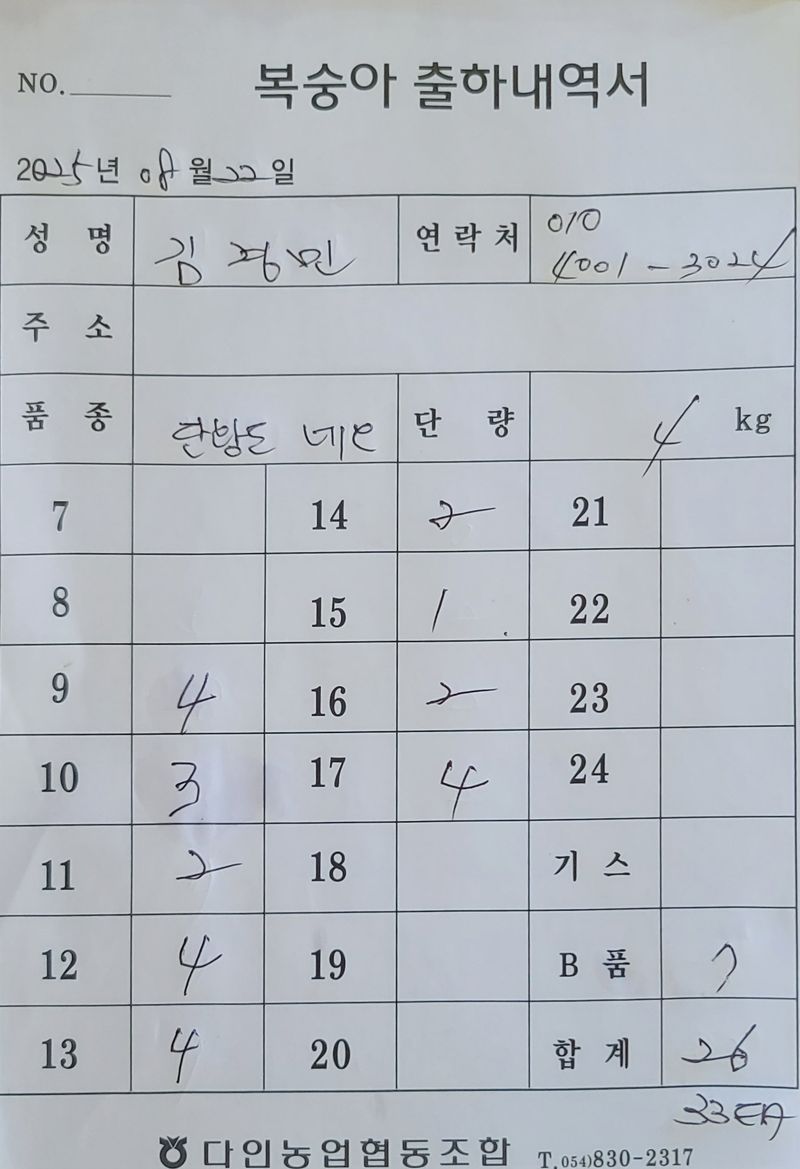 NO.
복숭아 출하내역서
2025년 08월 22일
성 명 김정민 연락처 010
4001-3024
주 소
품 종 단황도 네오 단 량 4 kg
7 14 2 21
8 15 1 22
9 4 16 2 23
10 3 17 4 24
11 2 18 기 스
12 4 19 B 품 7
13 4 20 합 계 26
33EA
다인농업협동조합 T.054)830-2317